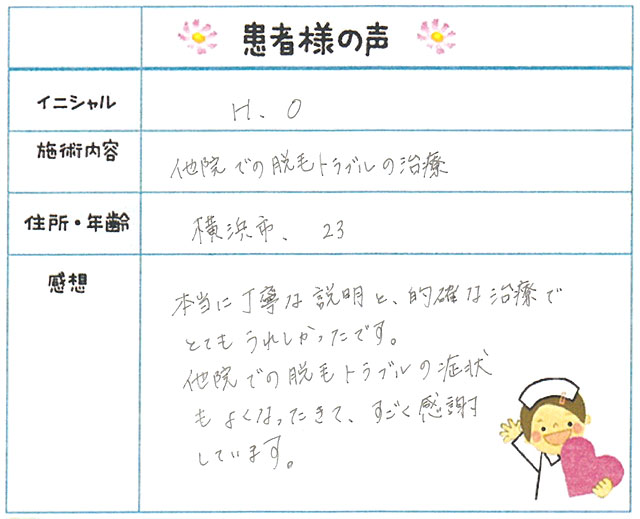 患者様の声
イニシャル
H、O
施術内容
他院での脱毛トラブルの治療
住所・年齢
横浜市、23
感想
本当に丁寧な説明と、的確な治療で
とてもうれしかったです。
他院での脱毛トラブルの症状
もよくなったきて、すごく感謝
しています。